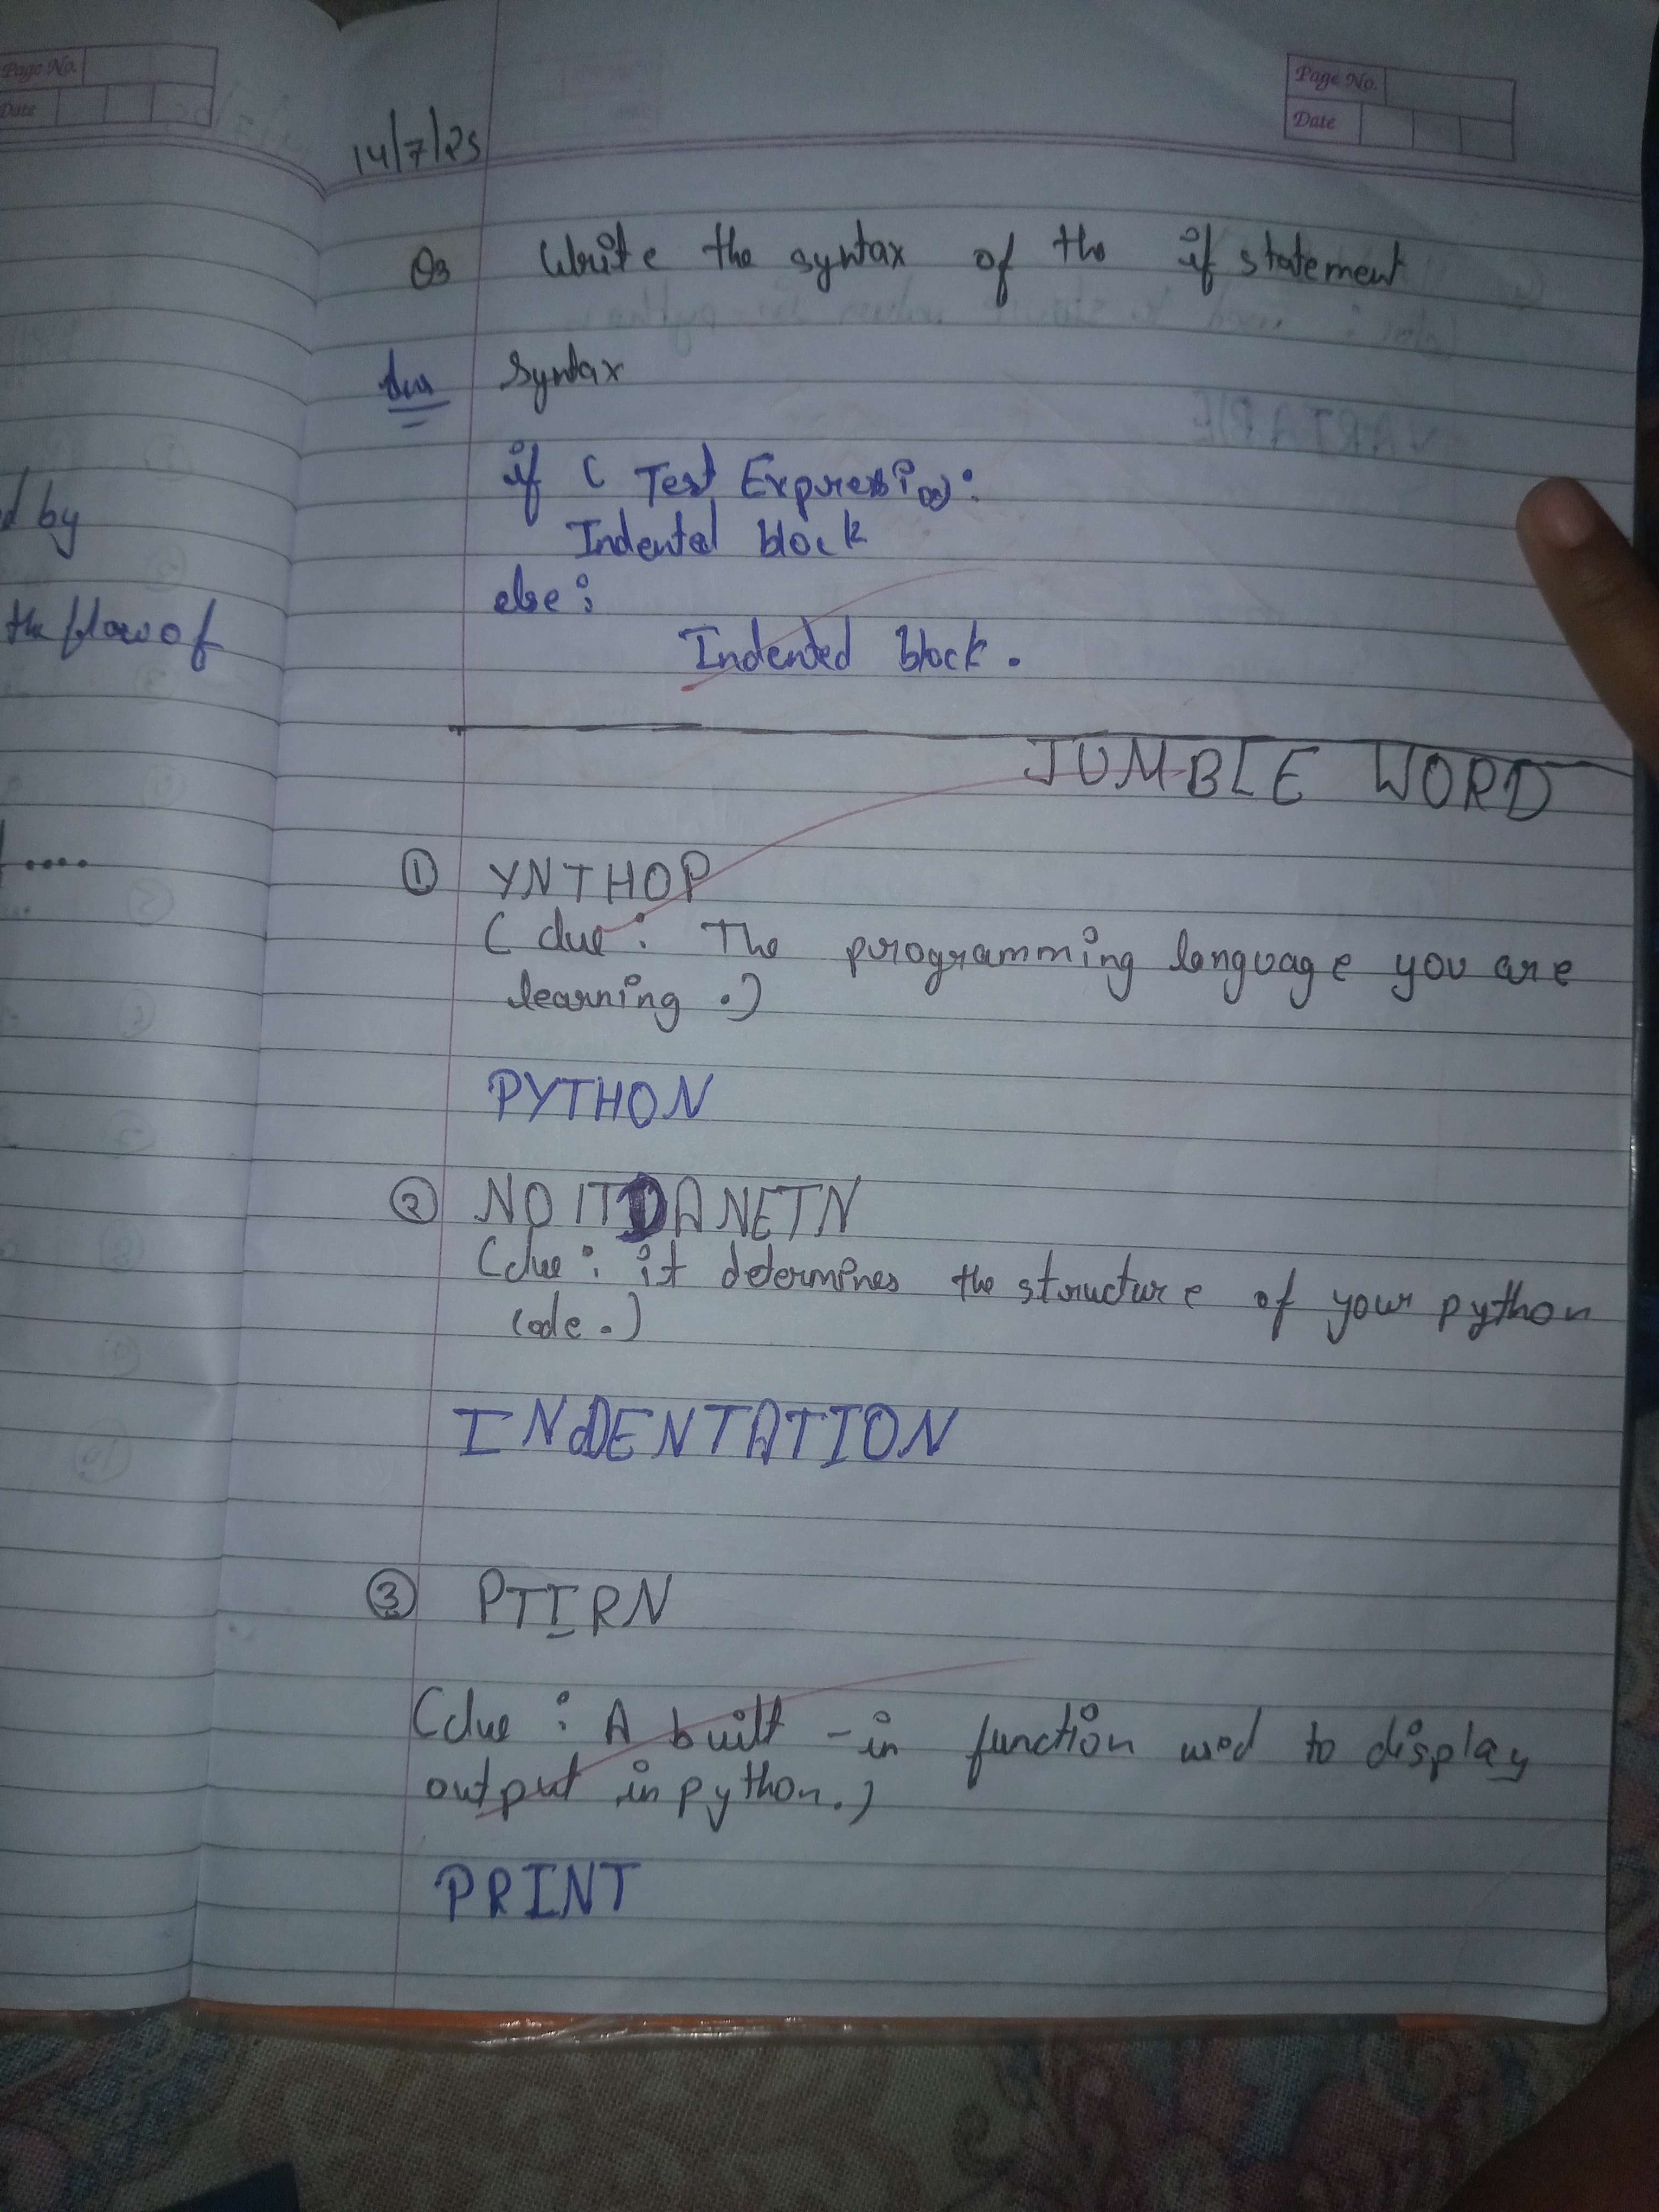 Page No.
Date
Page No.
Date
14/7/25
Q3 Write the syntax of the if statement
Ans Syntax
if ( Test Expression):
Indented block
else:
Indented block.
JUMBLE WORD
① YNTHOP
(clue: The programming language you are
learning.)
PYTHON
② NOITDANETN
(clue: it determines the structure of your python
code.)
INDENTATION
③ PTIRN
(clue: A built-in function used to display
output in python.)
PRINT
d by
the flow of
....